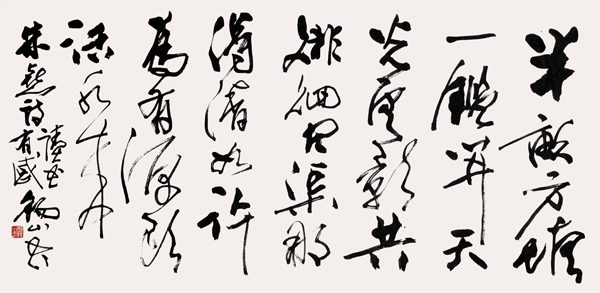 半畝方塘
一鑑开天
光雲影共
徘徊问渠那
得清如许
為有源頭
活水来
朱熹詩
讀書
有感